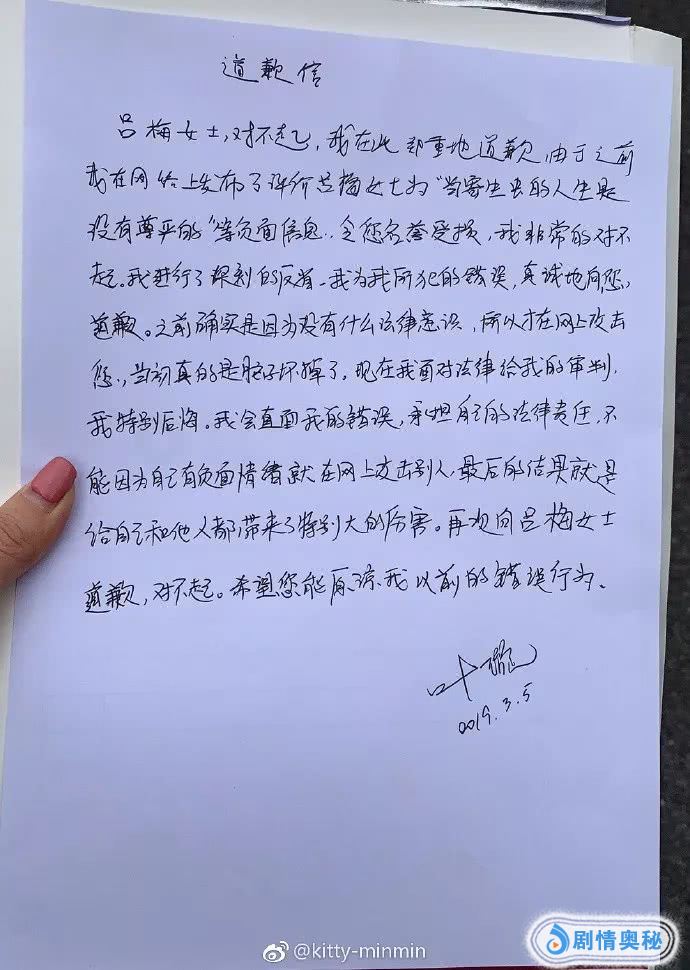 道歉信
吕梅女士,对不起,我在此郑重地道歉,由于之前
我在网络上发布了评价吕梅女士为“当寄生虫的人生是
没有尊严的”等负面信息..令您名誉受损,我非常的对不
起。我进行了深刻的反省.我为我所犯的错误,真诚地向您,
道歉。之前确实是因为没有什么法律意识,所以才在网上攻击
您,当初真的是脑子坏掉了,现在我面对法律给我的审判,
我特别后悔。我会直面我的错误,承担自己的法律责任,不
能因为自己有负面情绪就在网上攻击别人,最后的结果就是
给自己和他人都带来了特别大的厉害。再次向吕梅女士
道歉,对不起。希望您能原谅我以前的错误行为.
叶璇
2019.3.5
@kitty-minmin
剧情奥秘